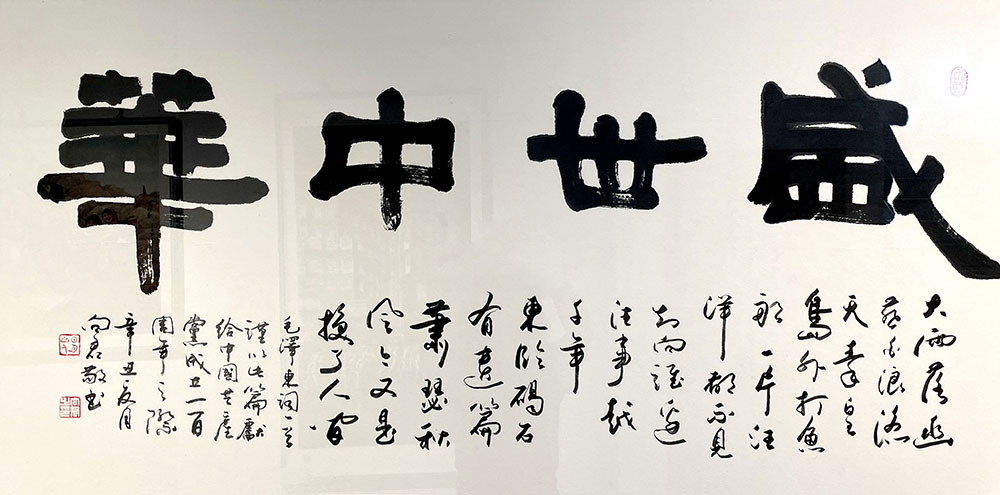 盛世中華
大雨落幽
燕白浪滔
天秦皇
島外打魚
船一片汪
洋都不見
知向誰邊
往事越
千年
東臨碣石
有遺篇
蕭瑟秋
風今又是
換了人間
毛澤東詞一首
謹以此篇獻
給中國共產
黨成立一百
周年之際
辛丑夏月
向君敬書